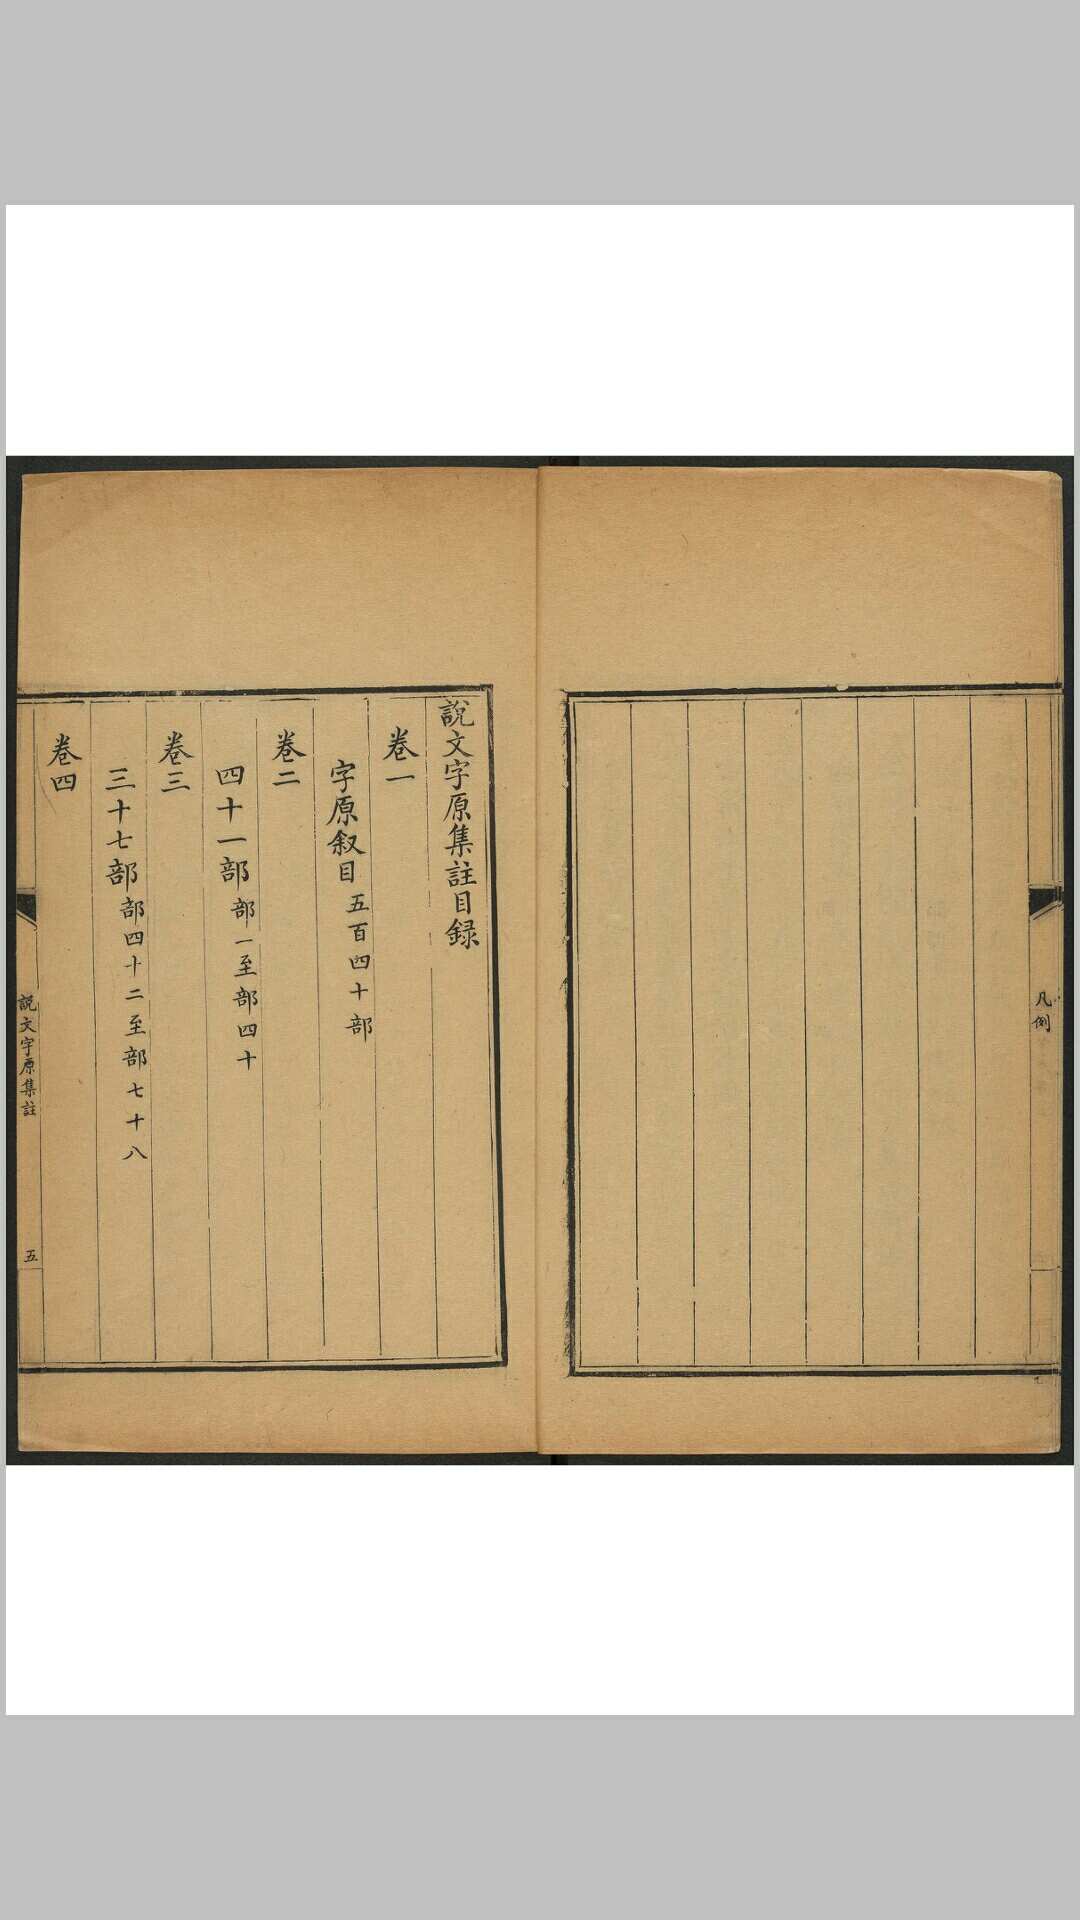 凡例
說文字原集註目録
卷一
字原叙目五百四十部
卷二
四十一部部一至部四十
卷三
三十七部部四十二至部七十八
卷四
說文字原集註
五